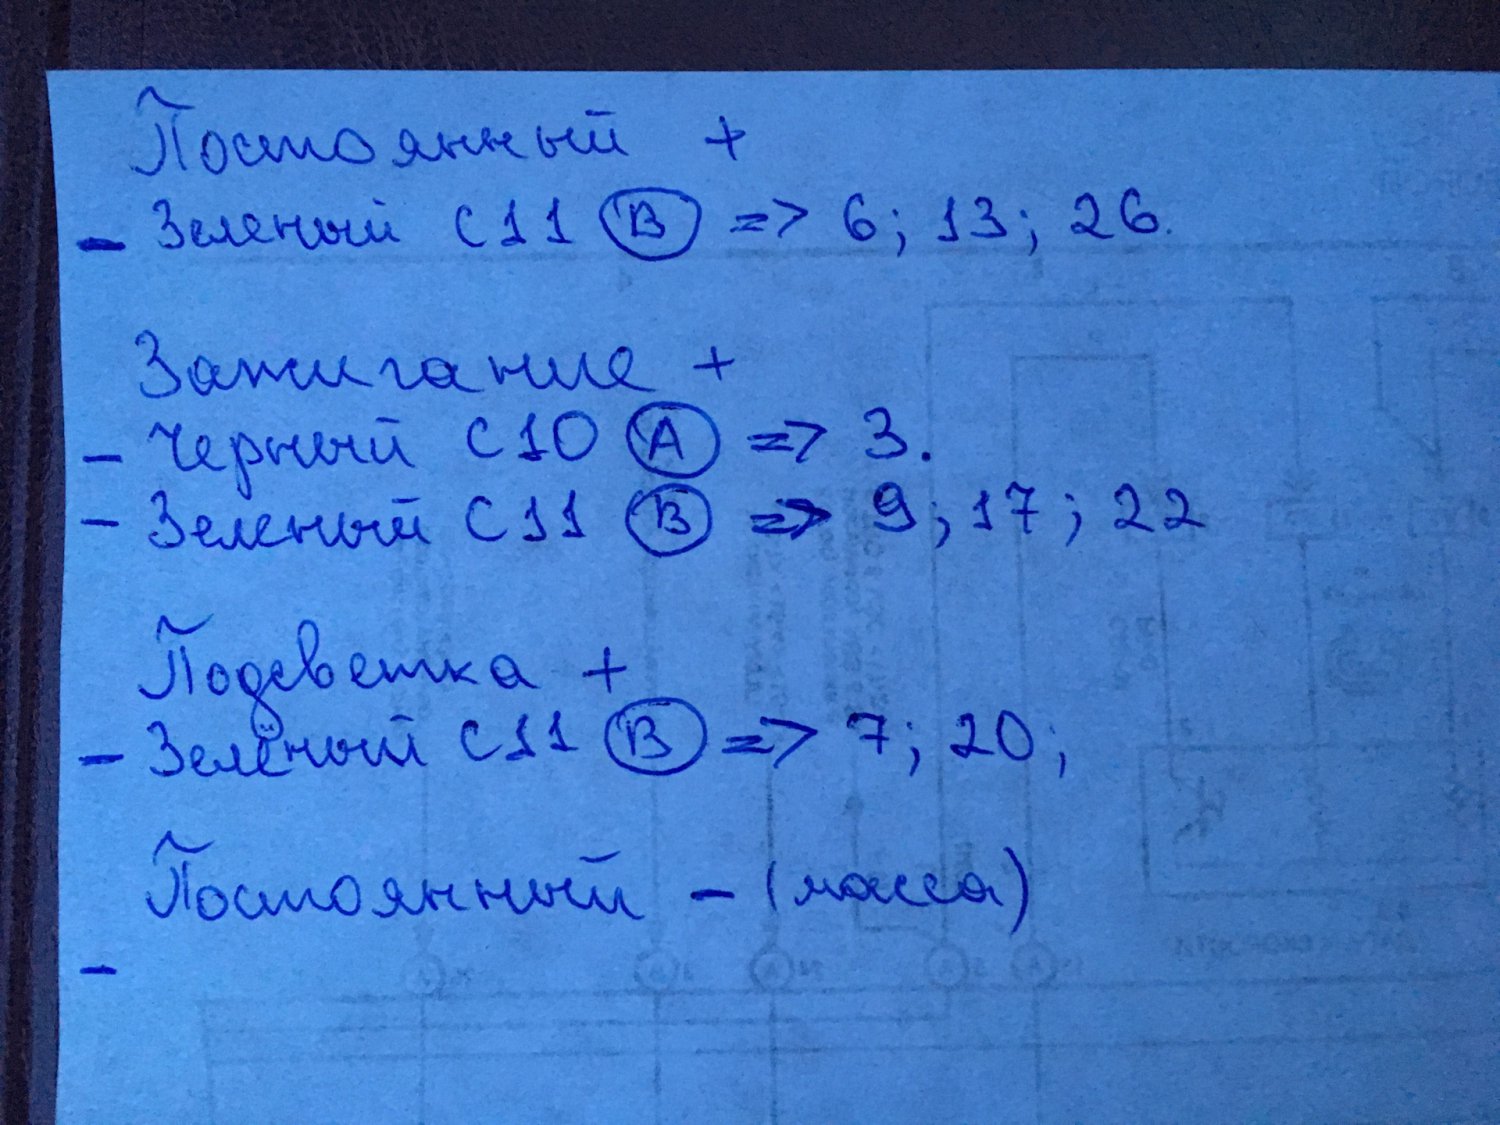 Постоянный +
- Зеленый C11 (B) => 6; 13; 26.
Зажигание +
- Черный C10 (A) => 3.
- Зеленый C11 (B) => 9; 17; 22
Подсветка +
- Зелёный C11 (B) => 7; 20;
Постоянный - (масса)
-